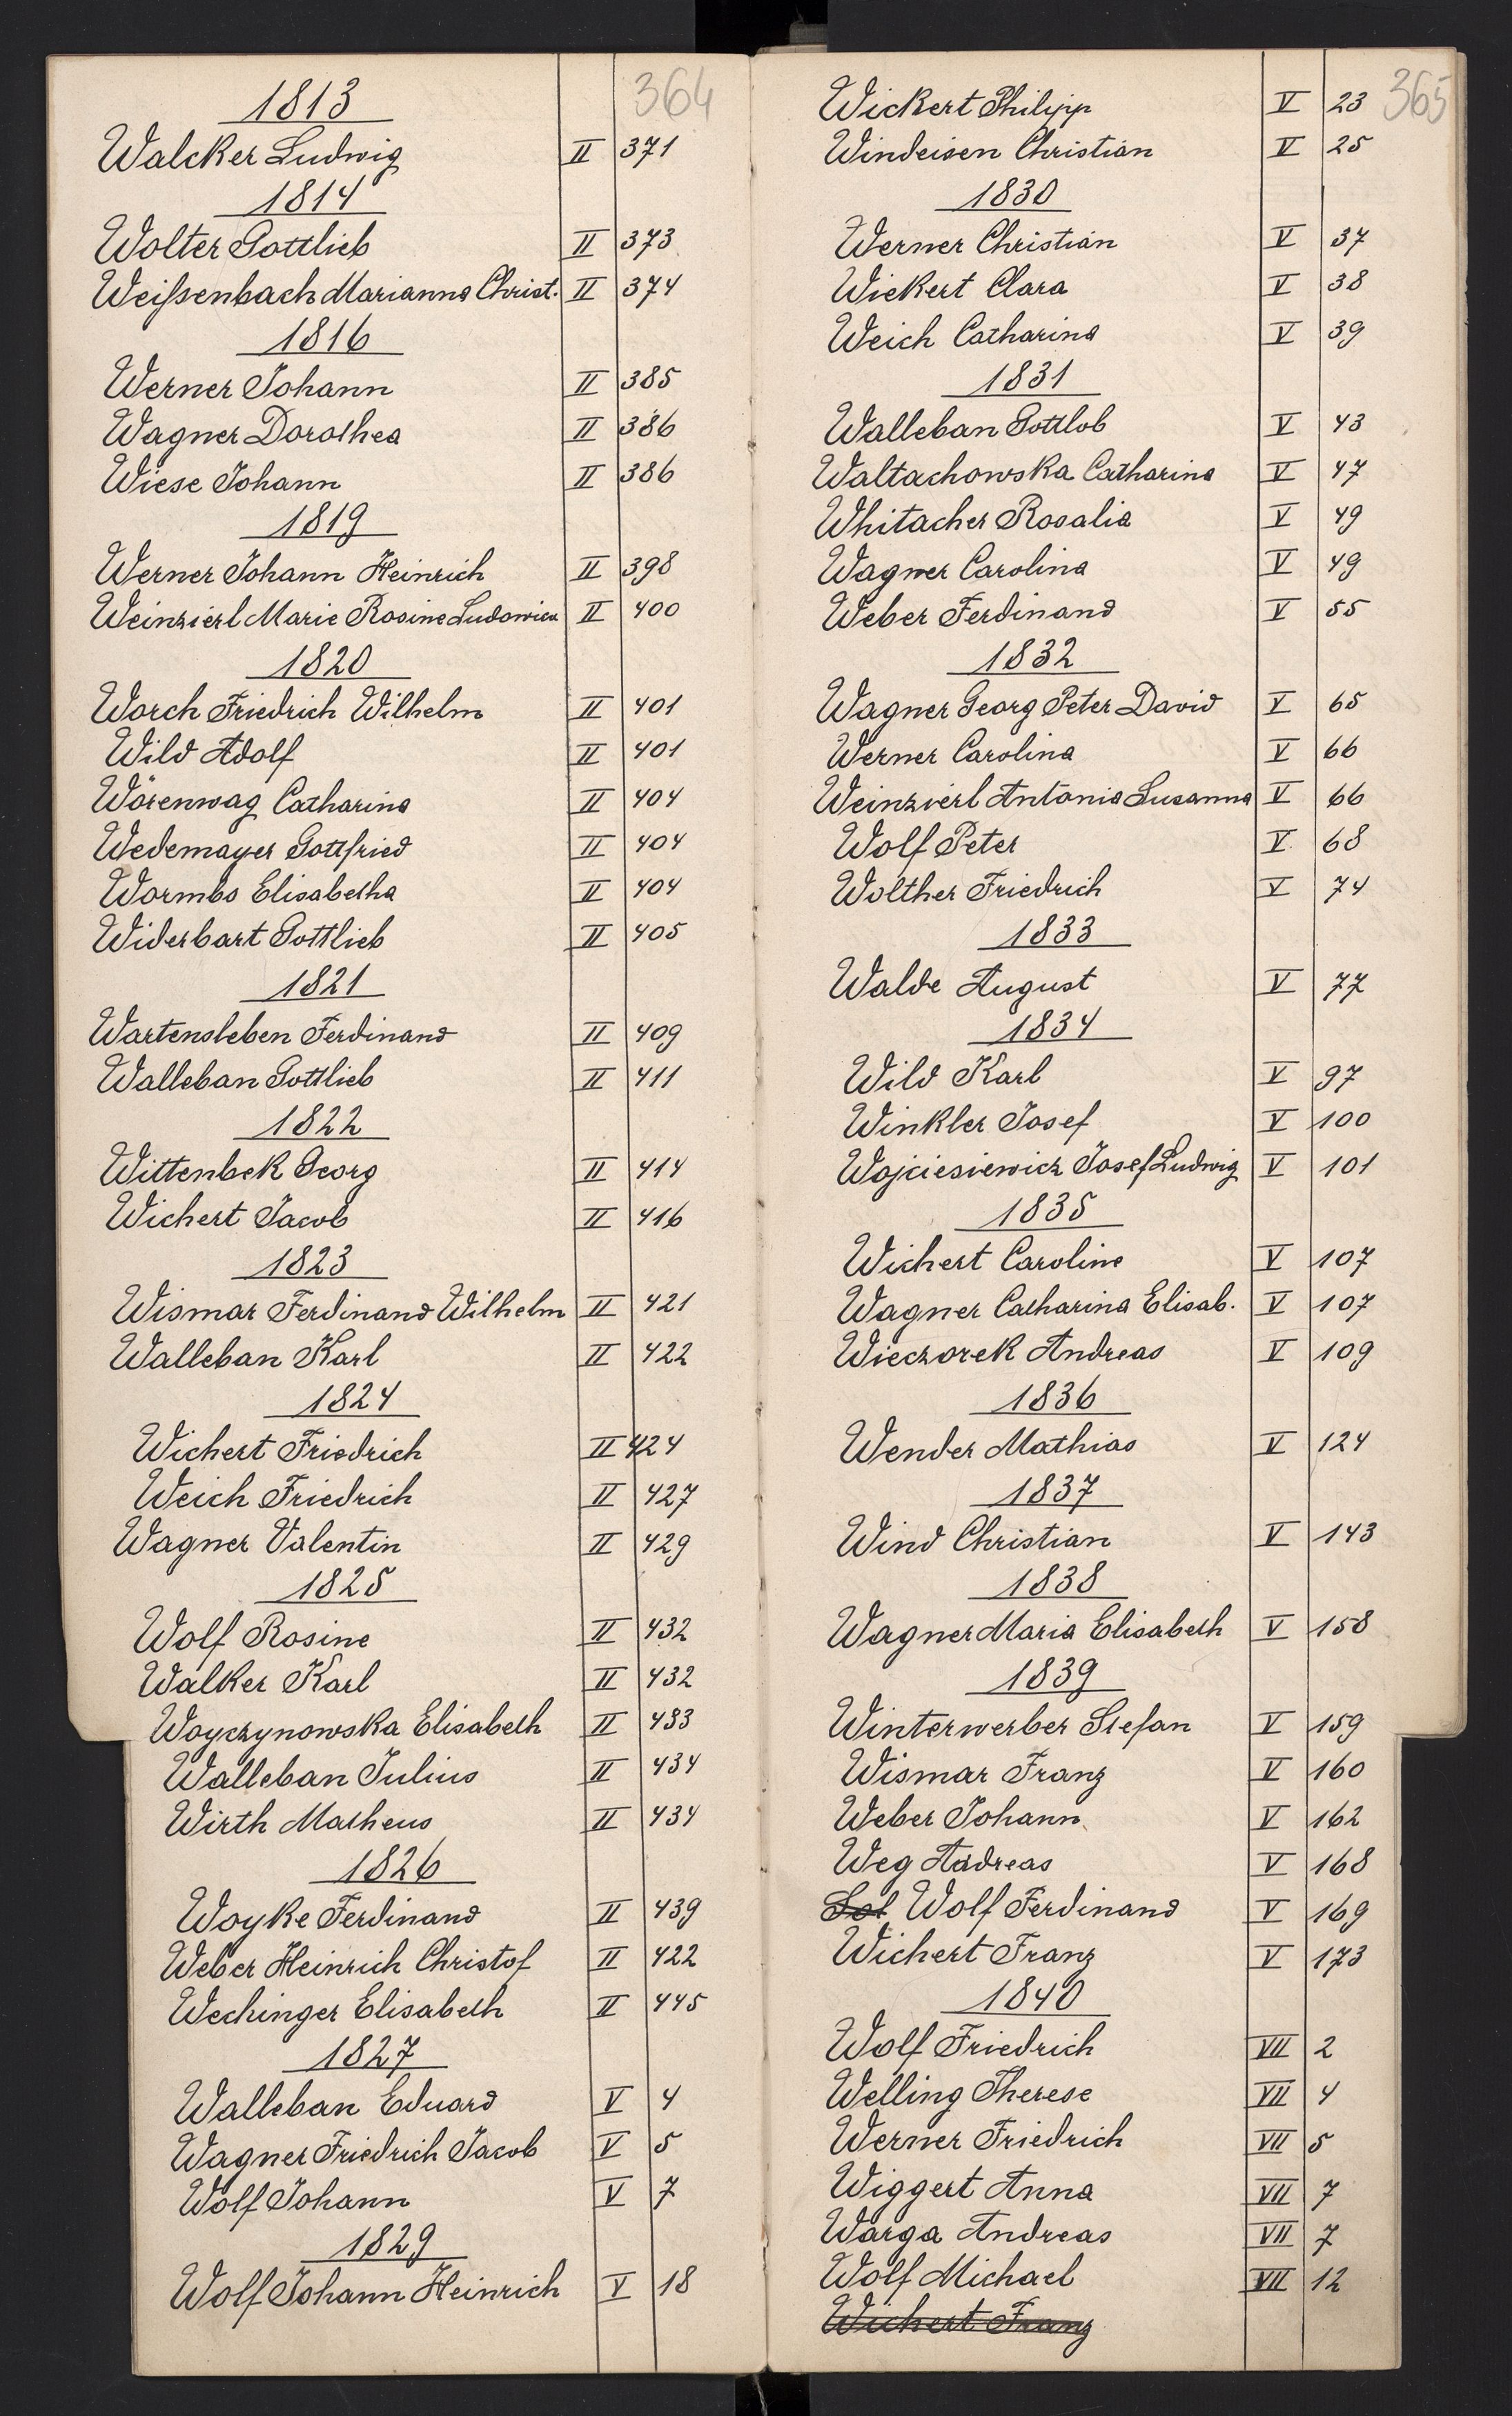 364
1813
Walcker Ludwig II 371
1814
Wolter Gottlieb II 373
Weißenbach Marianna Christ. II 374
1816
Werner Johann II 385
Wagner Dorothea II 386
Wiese Johann II 386
1819
Werner Johann Heinrich II 398
Weinzierl Marie Rosine Ludowica II 400
1820
Worch Friedrich Wilhelm II 401
Wild Adolf II 401
Wörenwag Catharina II 404
Wedemayer Gottfried II 404
Wormbs Elisabetha II 404
Widerbart Gottlieb II 405
1821
Wartensleben Ferdinand II 409
Walleban Gottlieb II 411
1822
Wittenbek Georg II 414
Wichert Jacob II 416
1823
Wismar Ferdinand Wilhelm II 421
Walleban Karl II 422
1824
Wichert Friedrich II 424
Weich Friedrich II 427
Wagner Valentin II 429
1825
Wolf Rosine II 432
Walker Karl II 432
Woyczynowska Elisabeth II 433
Walleban Julius II 434
Wirth Matheus II 434
1826
Woyke Ferdinand II 439
Weber Heinrich Christof II 422
Wechinger Elisabeth II 445
1827
Walleban Eduard V 4
Wagner Friedrich Jacob V 5
Wolf Johann V 7
1829
Wolf Johann Heinrich V 18
365
Wickert Philipp V 23
Windeisen Christian V 25
1830
Werner Christian V 37
Wickert Clara V 38
Weich Catharina V 39
1831
Walleban Gottlob V 43
Waltachowska Catharina V 47
Whitacher Rosalia V 49
Wagner Carolina V 49
Weber Ferdinand V 55
1832
Wagner Georg Peter David V 65
Werner Carolina V 66
Weinzierl Antonia Susanna V 66
Wolf Peter V 68
Wolther Friedrich V 74
1833
Walde August V 77
1834
Wild Karl V 97
Winkler Josef V 100
Wojciesiewicz Josef Ludwig V 101
1835
Wichert Caroline V 107
Wagner Catharina Elisab. V 107
Wieczorek Andreas V 109
1836
Wender Mathias V 124
1837
Wind Christian V 143
1838
Wagner Maria Elisabeth V 158
1839
Winterwerber Stefan V 159
Wismar Franz V 160
Weber Johann V 162
Weg Andreas V 168
Wolf Ferdinand V 169
Wichert Franz V 173
1840
Wolf Friedrich VII 2
Welling Therese VII 4
Werner Friedrich VII 5
Wiggert Anna VII 7
Warga Andreas VII 7
Wolf Michael VII 12
Wichert Franz